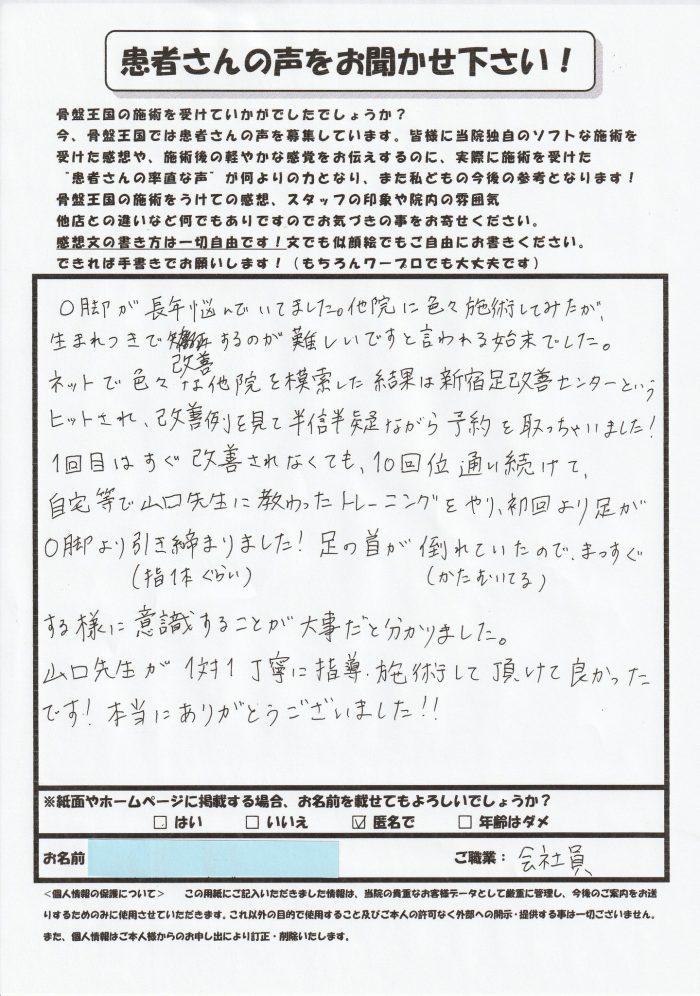 患者さんの声をお聞かせ下さい！
骨盤王国の施術を受けていかがでしたでしょうか？
今、骨盤王国では患者さんの声を募集しています。皆様に当院独自のソフトな施術を
受けた感想や、施術後の軽やかな感覚をお伝えするのに、実際に施術を受けた
"患者さんの率直な声"が何よりの力となり、また私どもの今後の参考となります！
骨盤王国の施術をうけての感想、スタッフの印象や院内の雰囲気
他店との違いなど何でもありですのでお気づきの事をお寄せください。
感想文の書き方は一切自由です！文でも似顔絵でもご自由にお書きください。
できれば手書きでお願いします！（もちろんワープロでも大丈夫です）
O脚が長年悩んでいてました。他院に色々施術してみたが、
生まれつきで するのが難しいですと言われる始末でした。
改善
ネットで色々な他院を模索した結果は新宿足改善センターという
ヒットされ、改善例を見て半信半疑ながら予約を取っちゃいました！
1回目はすぐ改善されなくても、10回位通い続けて、
自宅等で山口先生に教わったトレーニングをやり、初回より足が
O脚より引き締まりました！足の首が倒れていたので、まっすぐ
（指1本ぐらい）（かたむいてる）
する様に意識することが大事だと分かりました。
山口先生が1対1丁寧に指導・施術して頂けて良かった
です！本当にありがとうございました！！
※紙面やホームページに掲載する場合、お名前を載せてもよろしいでしょうか？
□ はい □ いいえ ☑ 匿名で □ 年齢はダメ
お名前 ご職業：会社員
＜個人情報の保護について＞ この用紙にご記入いただきました情報は、当院の貴重なお客様データとして厳重に管理し、今後のご案内をお送
りするためのみに使用させていただきます。これ以外の目的で使用すること及びご本人の許可なく外部への開示・提供する事は一切ございません。
また、個人情報はご本人様からのお申し出により訂正・削除いたします。